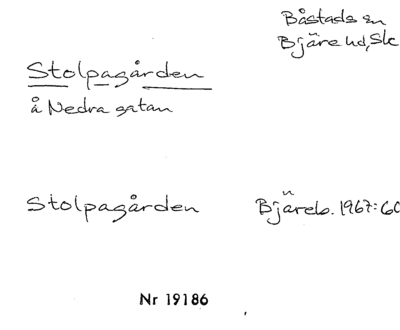 Båstads sn
Bjäre hd, Sk
Stolpagården
å Nedra gatan
Stolpagården Bjäreb. 1967:60
Nr 19186